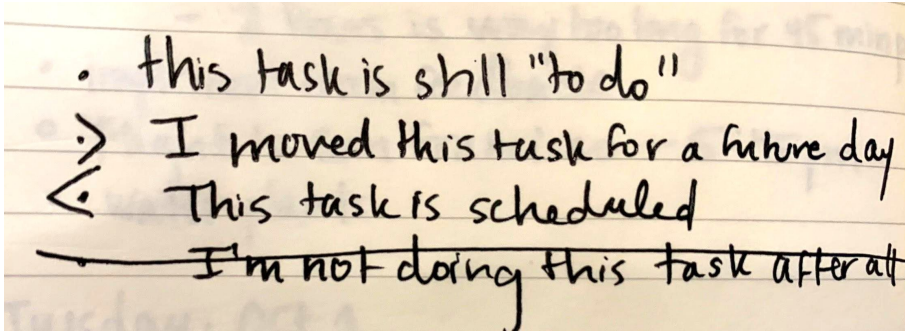 • this task is still "to do"
•> I moved this task for a future day
<• This task is scheduled
• I'm not doing this task after all